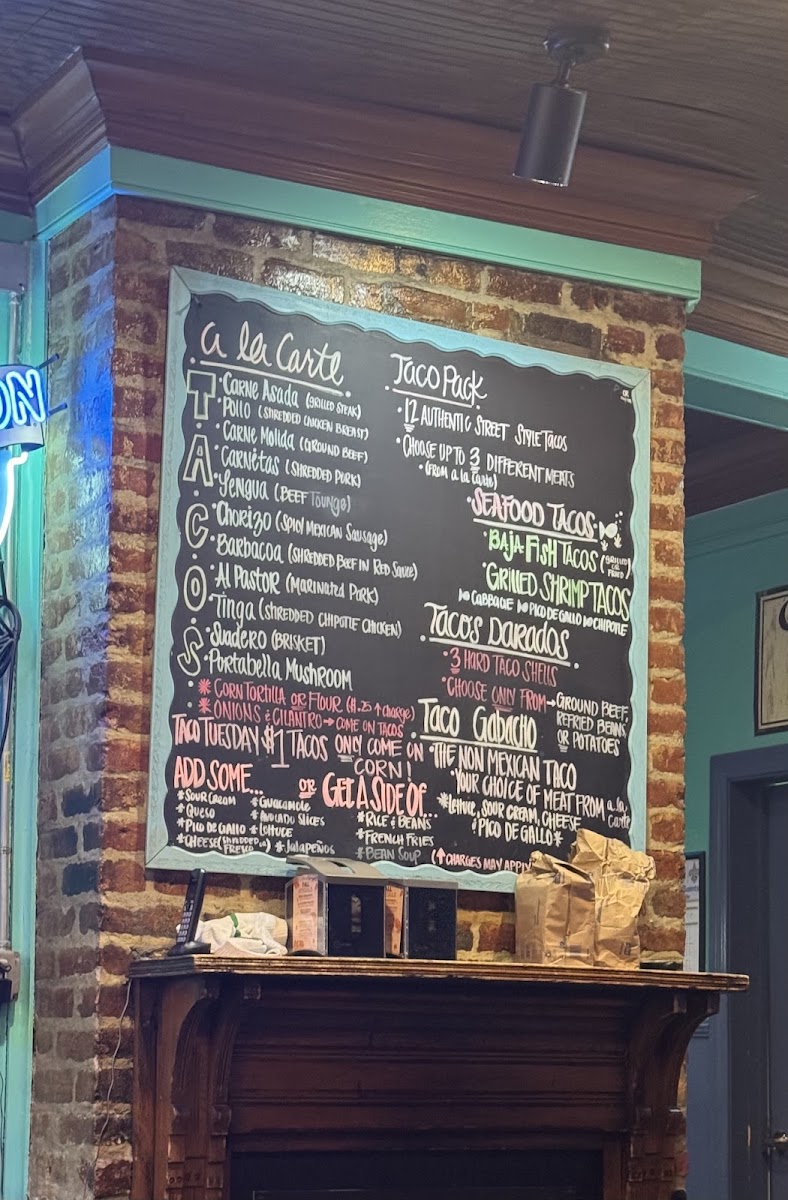 ON
a la Carte
TACOS
• Carne Asada (GRILLED STEAK)
• Pollo (SHREDDED CHICKEN BREAST)
• Carne Molida (GROUND BEEF)
• Carnitas (SHREDDED PORK)
• Lengua (BEEF Tounge)
• Chorizo (SPICY MEXICAN Sausage)
• Barbacoa (SHREDDED BEEF IN RED SAUCE)
• Al Pastor (MARINATED PORK)
• Tinga (SHREDDED CHIPOTLE CHICKEN)
• Suadero (BRISKET)
• PORTABELLA MUSHROOM
* CORN TORTILLA OR FLOUR ($.25 ↑ charge)
* ONIONS & CILANTRO → COME ON TACOS
TACO TUESDAY $1 TACOS ONLY COME ON
CORN!
ADD SOME...
* SOUR CREAM
* QUESO
* PICO DE GALLO
* CHEESE (SHREDDED or
FRESCO)
* GUACAMOLE
* AVOCADO SLICES
* LETTUCE
* JALAPEÑOS
OR GET A SIDE OF...
* RICE & BEANS
* FRENCH FRIES
* BEAN SOUP
(↑ CHARGES MAY APPLY
Taco Pack
• 12 AUTHENTIC STREET STYLE TACOS
• CHOOSE UP TO 3 DIFFERENT MEATS
• (FROM a la Carte)
• SEAFOOD TACOS •
• BAJA FISH TACOS (GRILLED
OR
FRIED)
• GRILLED SHRIMP TACOS
w/ CABBAGE w/ PICO DE GALLO w/ CHIPOTLE
• TACOS DARADOS •
• 3 HARD TACO SHELLS
• CHOOSE ONLY FROM → GROUND BEEF,
REFRIED BEANS
OR POTATOES
• Taco Gabacho
• THE NON MEXICAN TACO
• YOUR CHOICE OF MEAT FROM a la
carte
* LETTUCE, SOUR CREAM, CHEESE
& PICO DE GALLO *